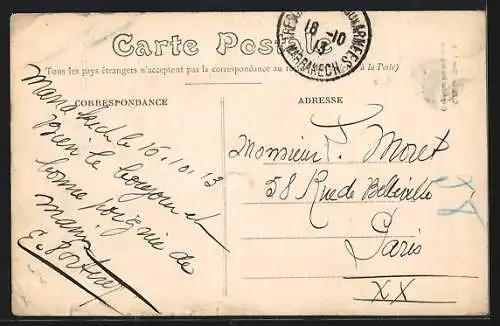 Carte Postale
Tous les pays étrangers n'acceptent pas la correspondance au
à la Poste)
18 -10
13
MARRAKECH
CORRESPONDANCE
Marrakech le 16.10.13
Bien le bonjour et
bonne poignée de
main
ADRESSE
Monsieur F. Moret
58 Rue de Belleville
Paris
XX
58